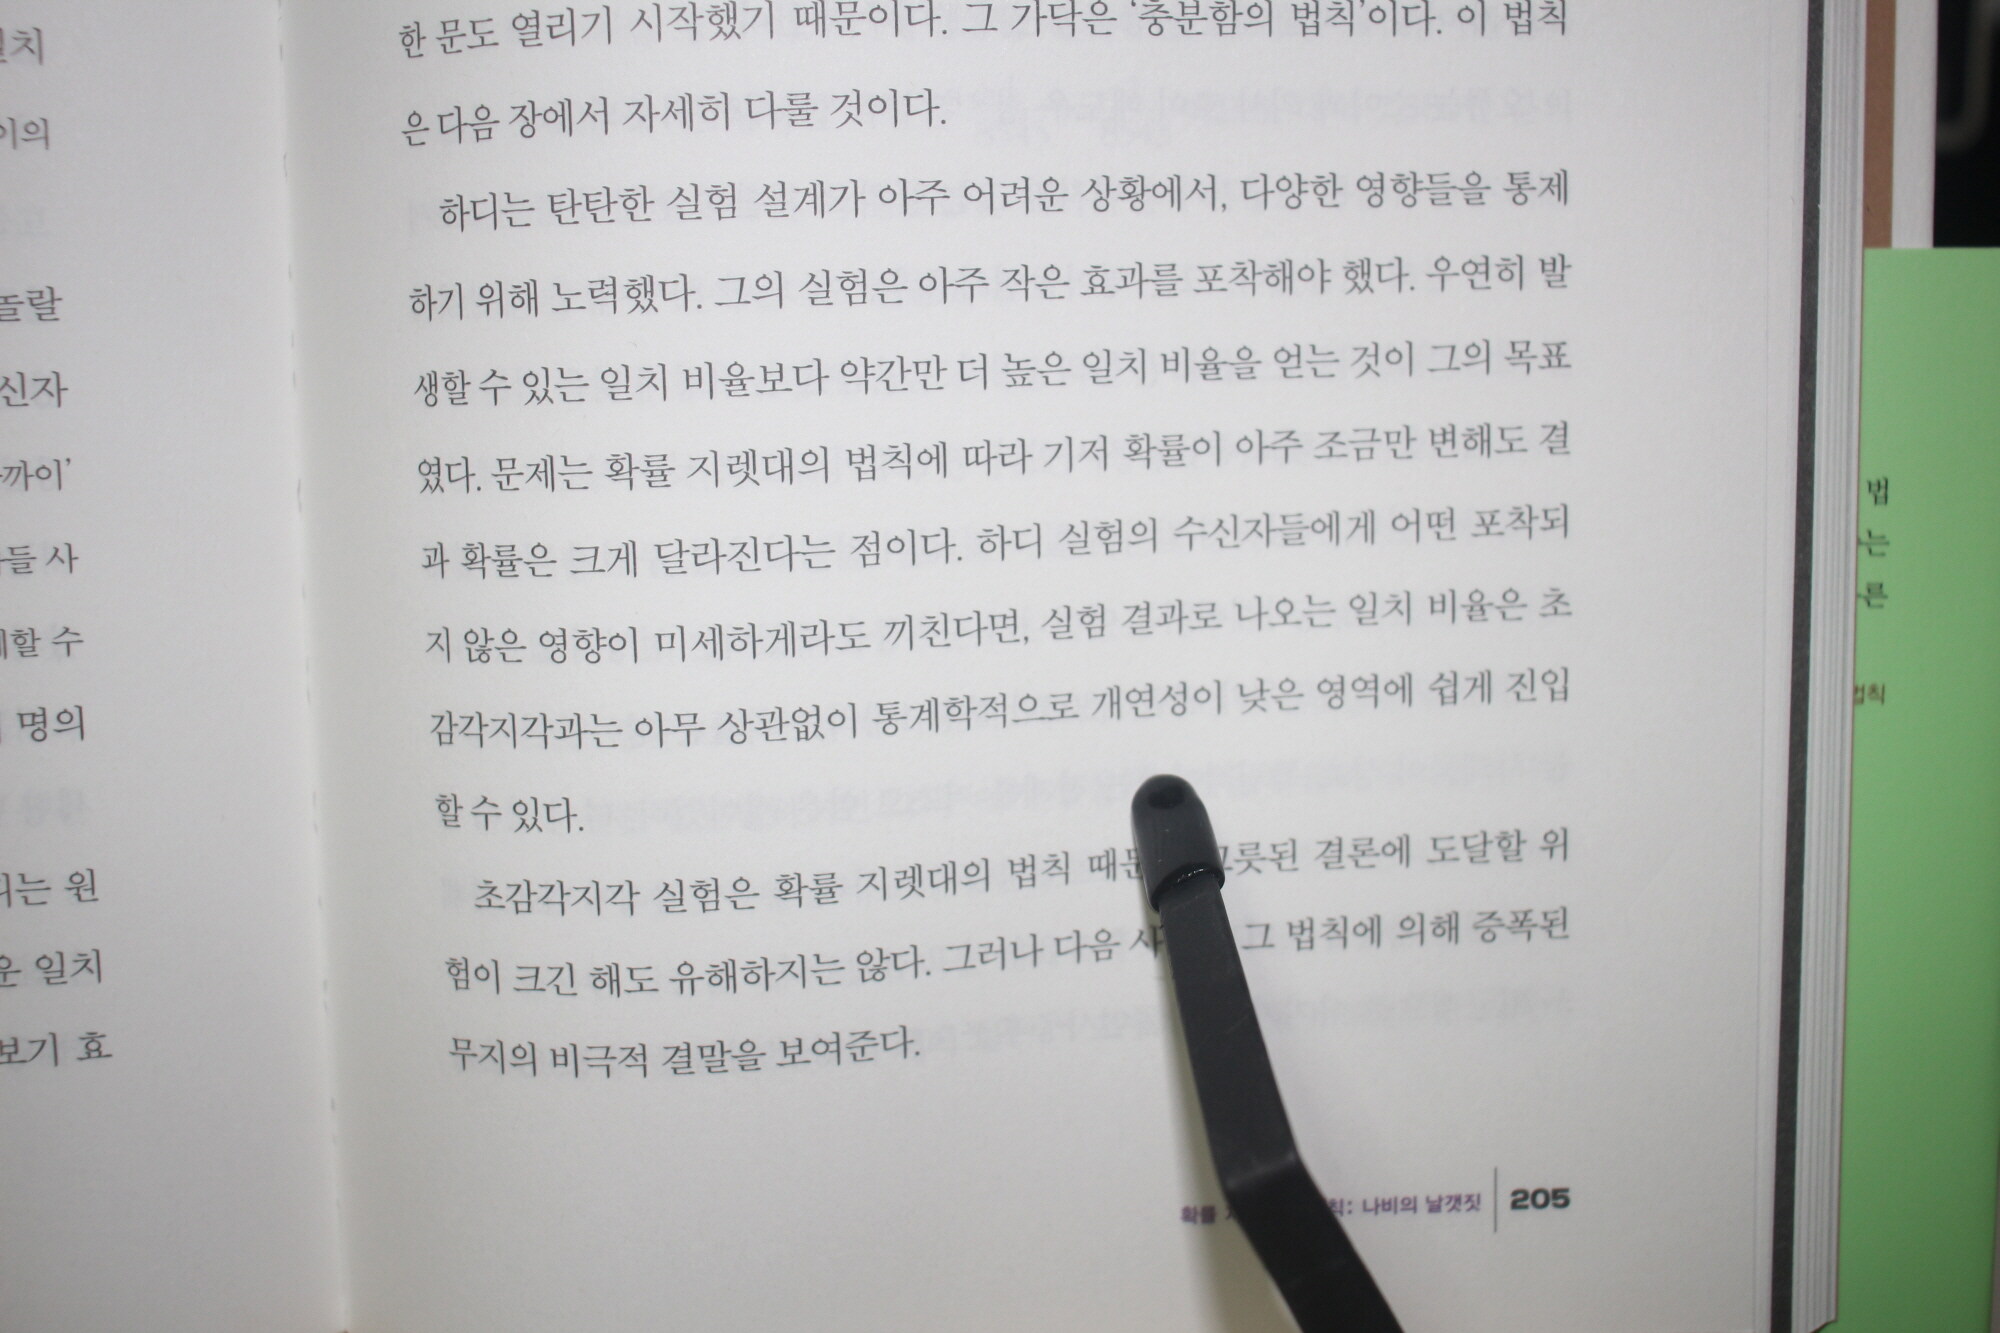 일치
이의
놀랄
신자
까이’
들 사
할 수
명의
는 원
운 일치
보기 효
한 문도 열리기 시작했기 때문이다. 그 가닥은 ‘충분함의 법칙’이다. 이 법칙
은 다음 장에서 자세히 다룰 것이다.
하디는 탄탄한 실험 설계가 아주 어려운 상황에서, 다양한 영향들을 통제
하기 위해 노력했다. 그의 실험은 아주 작은 효과를 포착해야 했다. 우연히 발
생할 수 있는 일치 비율보다 약간만 더 높은 일치 비율을 얻는 것이 그의 목표
였다. 문제는 확률 지렛대의 법칙에 따라 기저 확률이 아주 조금만 변해도 결
과 확률은 크게 달라진다는 점이다. 하디 실험의 수신자들에게 어떤 포착되
지 않은 영향이 미세하게라도 끼친다면, 실험 결과로 나오는 일치 비율은 초
감각지각과는 아무 상관없이 통계학적으로 개연성이 낮은 영역에 쉽게 진입
할 수 있다.
초감각지각 실험은 확률 지렛대의 법칙 때문 그릇된 결론에 도달할 위
험이 크긴 해도 유해하지는 않다. 그러나 다음 그 법칙에 의해 증폭된
무지의 비극적 결말을 보여준다.
확률 칙: 나비의 날갯짓 205
법
는
른
법칙